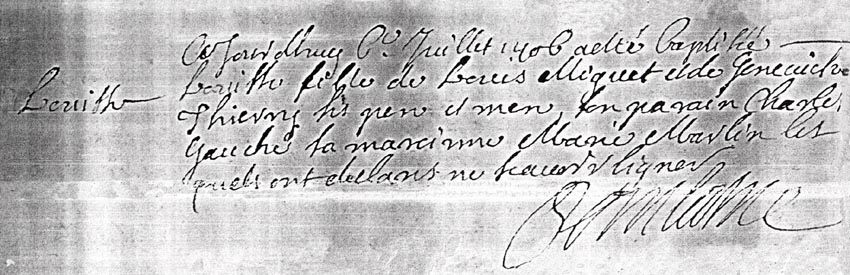 Aujourdhuy 6e Juillet 1706 a esté baptisée
Louisse
Louisse fille de Louis Miquet et de Genevieve
Thierry ses pere et mere son parain Charles
Gauché la maraine Marie Martin les
quels ont declaré ne scavoir signer